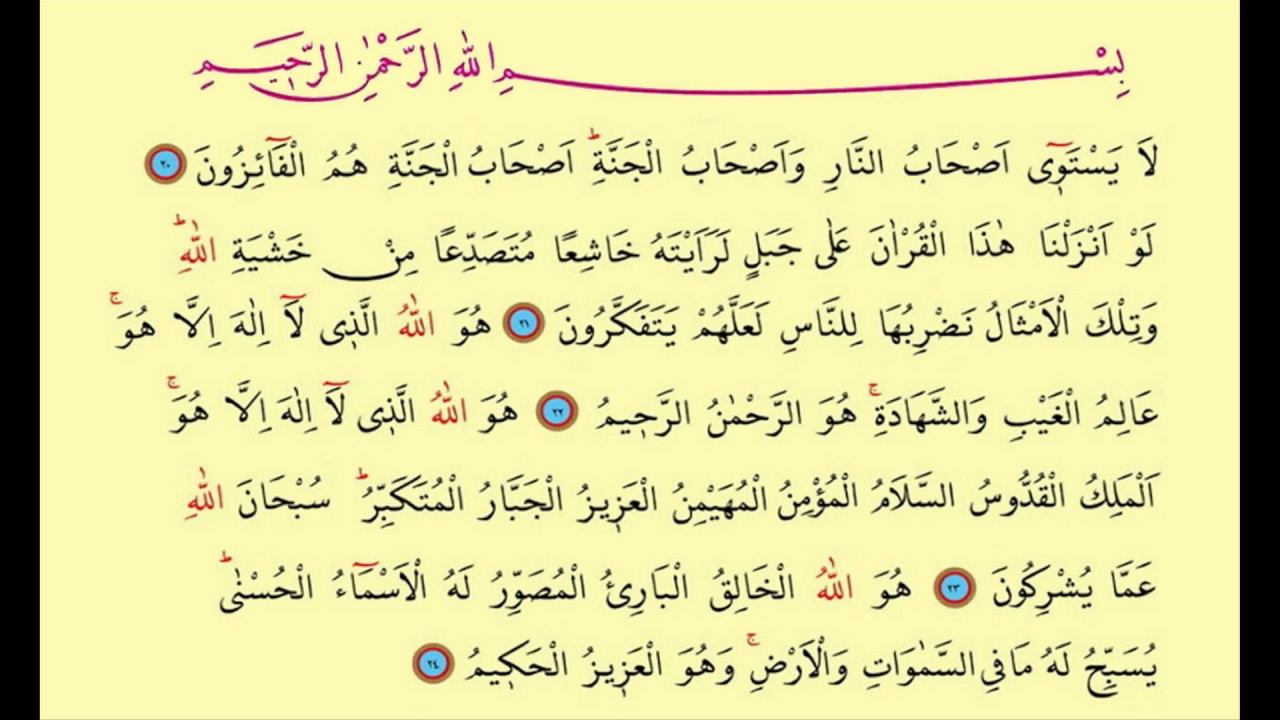 بِسْمِ اللّٰهِ الرَّحْمٰنِ الرَّحٖيمِ
لَا يَسْتَوٖٓى اَصْحَابُ النَّارِ وَاَصْحَابُ الْجَنَّةِؕ اَصْحَابُ الْجَنَّةِ هُمُ الْفَٓائِزُونَ ﴿٢٠﴾
لَوْ اَنْزَلْنَا هٰذَا الْقُرْاٰنَ عَلٰى جَبَلٍ لَرَاَيْتَهُ خَاشِعًا مُتَصَدِّعًا مِنْ خَشْيَةِ اللّٰهِؕ
وَتِلْكَ الْاَمْثَالُ نَضْرِبُهَا لِلنَّاسِ لَعَلَّهُمْ يَتَفَكَّرُونَ ﴿٢١﴾ هُوَ اللّٰهُ الَّذٖى لَٓا اِلٰهَ اِلَّا هُوَۚ
عَالِمُ الْغَيْبِ وَالشَّهَادَةِۚ هُوَ الرَّحْمٰنُ الرَّحٖيمُ ﴿٢٢﴾ هُوَ اللّٰهُ الَّذٖى لَٓا اِلٰهَ اِلَّا هُوَۚ
اَلْمَلِكُ الْقُدُّوسُ السَّلَامُ الْمُؤْمِنُ الْمُهَيْمِنُ الْعَزٖيزُ الْجَبَّارُ الْمُتَكَبِّرُؕ سُبْحَانَ اللّٰهِ
عَمَّا يُشْرِكُونَ ﴿٢٣﴾ هُوَ اللّٰهُ الْخَالِقُ الْبَارِئُ الْمُصَوِّرُ لَهُ الْاَسْمَٓاءُ الْحُسْنٰىؕ
يُسَبِّحُ لَهُ مَا فِى السَّمٰوَاتِ وَالْاَرْضِۚ وَهُوَ الْعَزٖيزُ الْحَكٖيمُ ﴿٢٤﴾